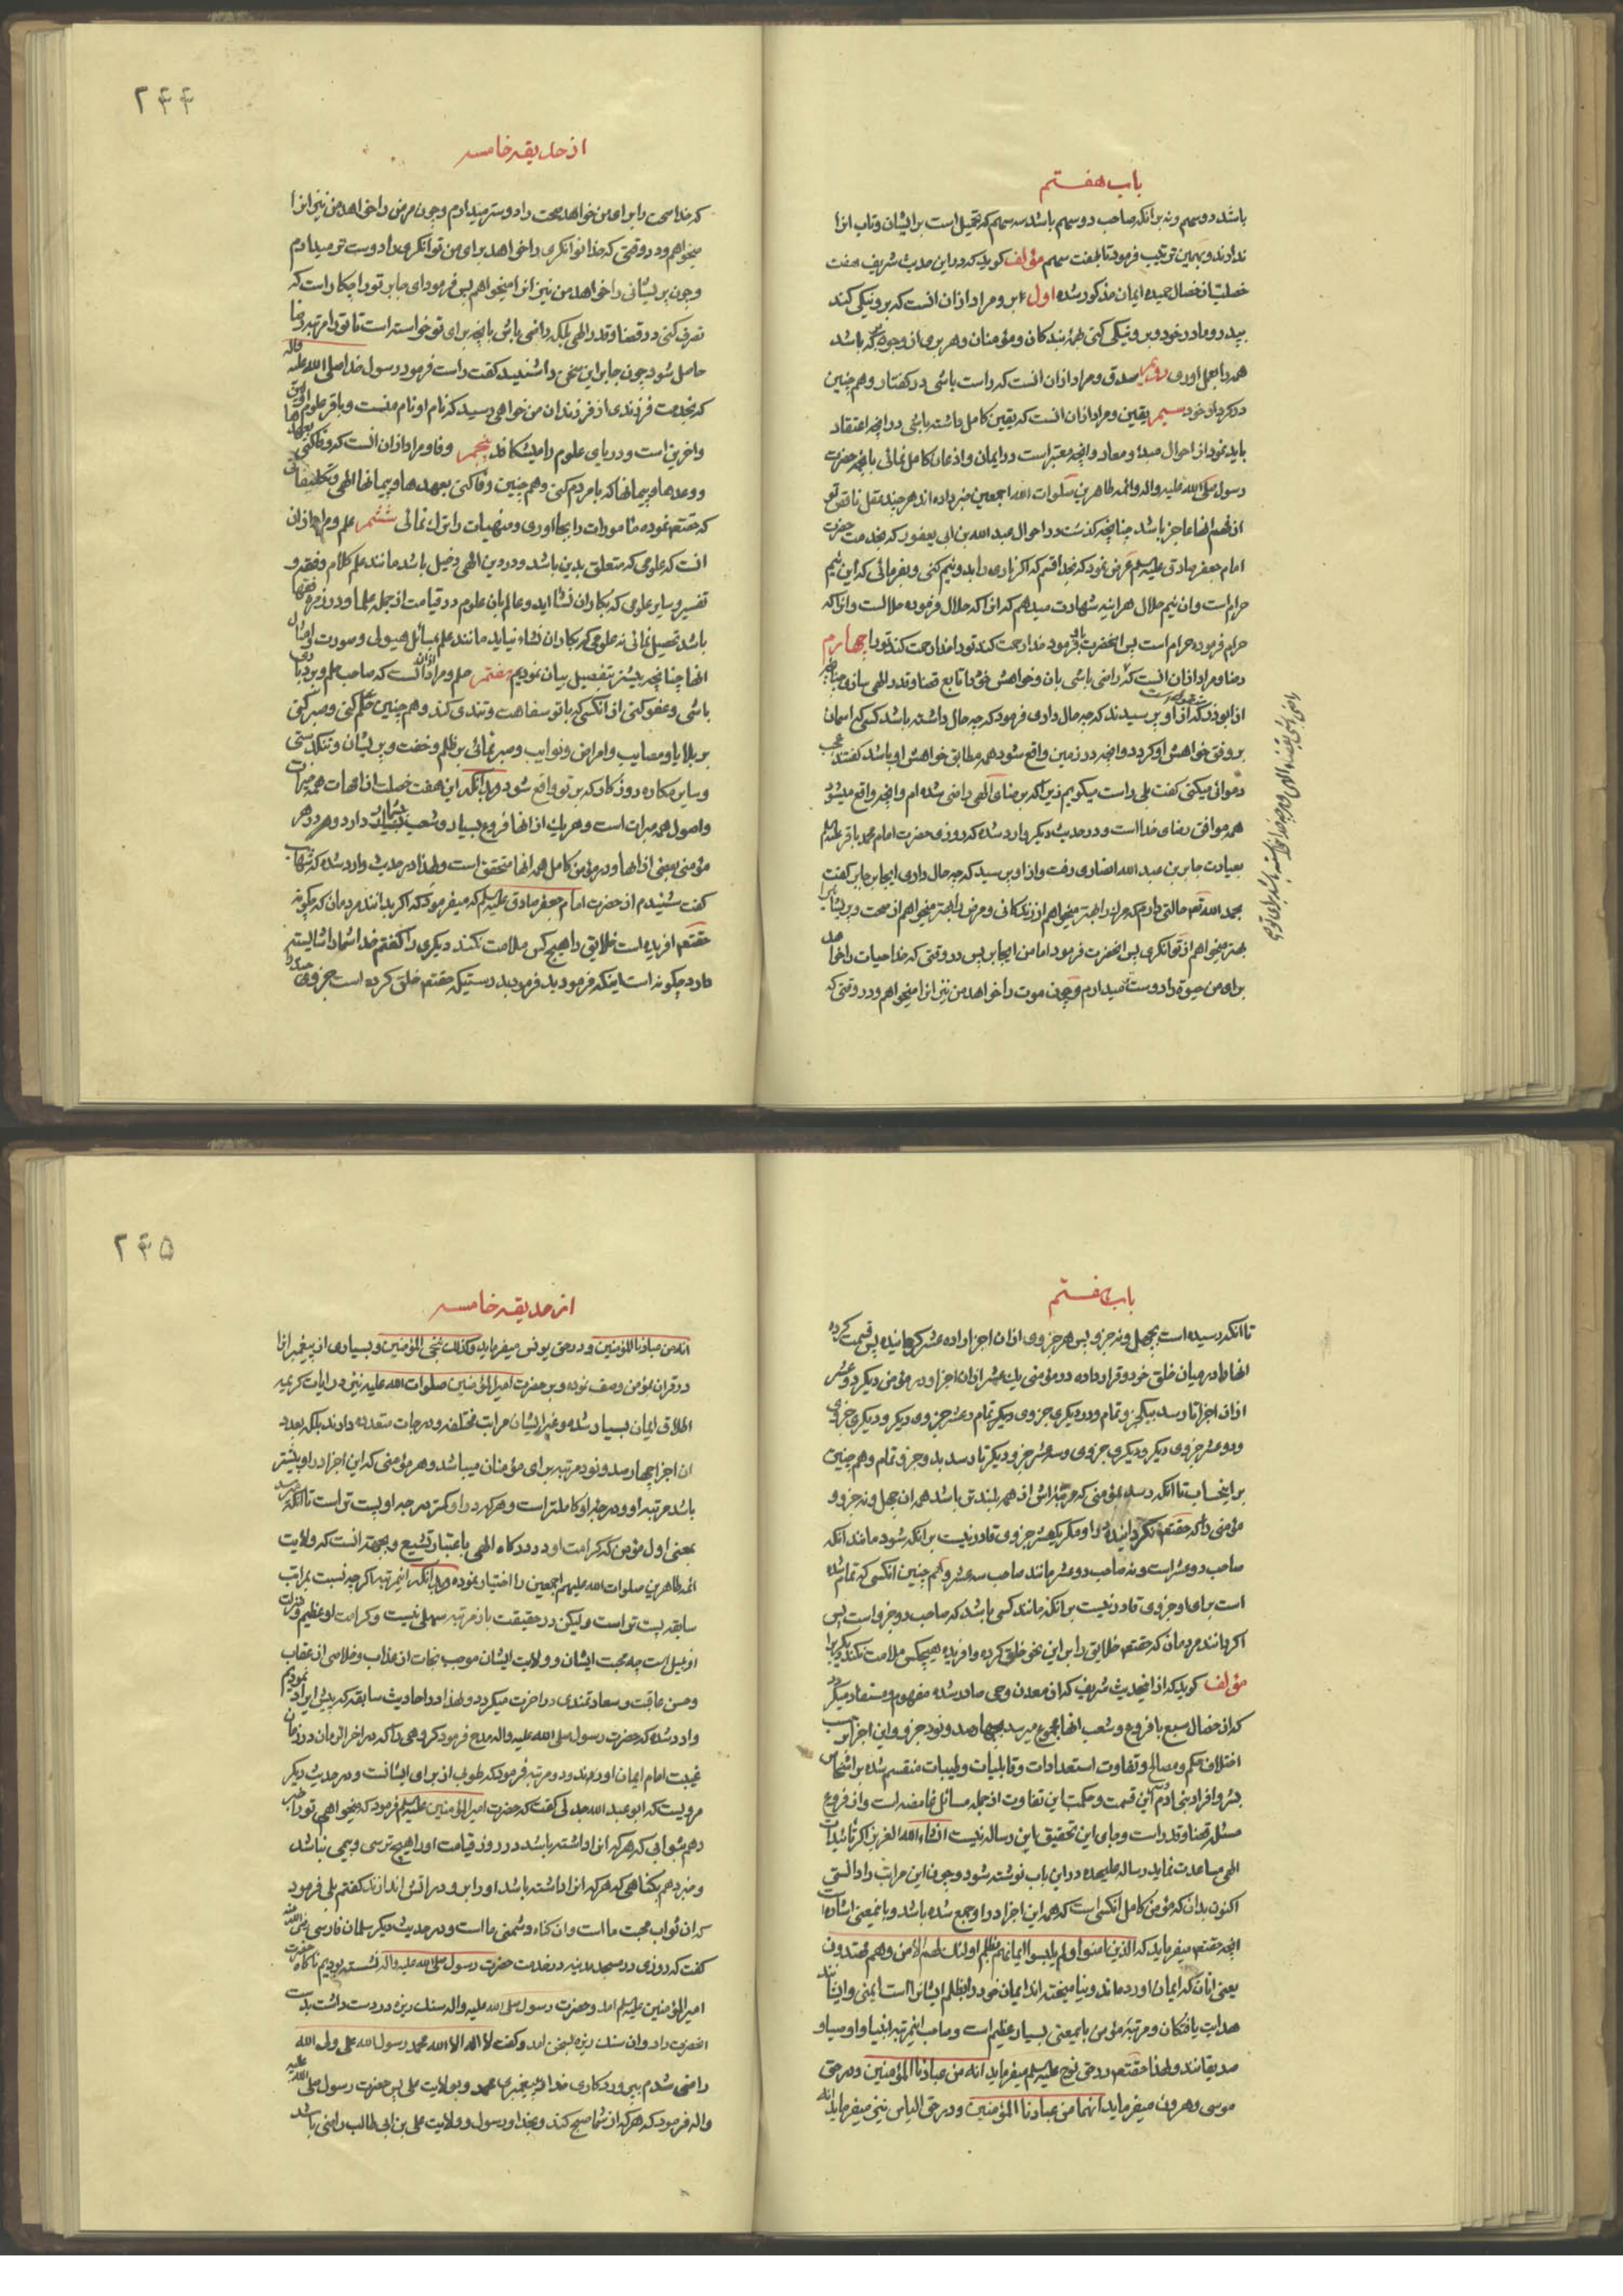 باب هفتم
باشد دو سهم و نه بر انکه صاحب دو سهم باشد سه سهم که ثقیل است بر ایشان و تاب انرا
ندارند و بهمین ترتیب فرمود تا بهفت سهم مؤلف کوید که در این حدیث شریف هفت
خصلت از خصال حمیده ایمان مذکور شده اول بر و مراد از ان انست که بر و نیکی کند
بپدر و مادر خود و بر و نیکی کنی همۀ بندکان و مؤمنان و هر بری از وجوه بر که باشد
همه را بعمل اوری دویم صدق و مراد از ان انست که راست باشی در کفتار و هم چنین
در کردار خود سیم یقین و مراد از ان انست که یقین کامل داشته باشی در انچه اعتقاد
باید نمود از احوال مبدء و معاد و انچه معتبر است در ایمان و اذعان کامل نمائی بانچه حضرت
رسول صلی الله علیه واله وائمه طاهرین صلوات الله اجمعین خبر داده اند هر چند عقل ناقص تو
از فهم انها عاجز باشد چنانچه کذشت در احوال عبد الله بن ابی یعفور که بخدمت حضرت
امام جعفر صادق علیه السلم عرض نمود که بخدا قسم که اکر ناری را بدو نیم کنی و بفرمائی که این نیم
حرام است وان نیم حلال هر اینه شهادت میدهم که انرا که حلال فرموده حلالست وانرا که
حرام فرموده حرام است پس انحضرت باو فرمود خدا رحمت کند تو را خدا رحمت کند تو را چهارم
رضا و مراد از ان انست که راضی باشی بان و خواهش خود را تابع قضا و قدر الهی سازی چنانچه
از ابوذر که از او پرسیدند که چه حال داری فرمود که چه حال داشته باشد کسی که اسمان
بر وفق خواهش او کردد و انچه در زمین واقع شود همه مطابق خواهش او باشد کفتند عجب
دعوائی میکنی کفت بلی راست میکویم زیرا که برضای الهی راضی شده ام و انچه واقع میشود
همه موافق رضای خدا است و در حدیث دیکر وارد شده که روزی حضرت امام محمد باقر علیه السلم
بعیادت جابر بن عبد الله انصاری رفت و از او پرسید که چه حال داری ایجابر جابر کفت
بحمد الله حالتی دارم که مرک را بهتر میخواهم از زندکانی و مرض را بهتر میخواهم از صحت و پریشانیرا
بهتر میخواهم از توانکری پس انحضرت فرمود اما من ایجابر پس در وقتی که خدا حیات را خواهد
برای من حیوة را دوست میدارم و چون موت را خواهد من نیز انرا میخواهم و در وقتی که
۲۴۴
از حدیقه خامسه
که خدا صحت را برای من خواهد صحت را دوستر میدارم و چون مرض را خواهد من نیز انرا
میخواهم و در وقتی که خدا توانکری را خواهد برای من توانکری را دوست تر میدارم
و چون پریشانی را خواهد من نیز انرا میخواهم پس فرمود ای جابر تو را چکار است که
تصرف کنی در قضا و قدر الهی بلکه راضی باش بانچه برای تو خواسته است تا تو را مرتبه رضا
حاصل شود چون جابر این سخن را شنید کفت راست فرمود رسول خدا صلی الله علیه واله
که بخدمت فرزندی از فرزندان من خواهی رسید که نام او نام منست و باقر علوم اولین
و اخرین است و دریای علوم را میشکافد پنجم وفا و مراد از ان انست که وفا کنی بعهدها
و وعدها و پیمانها که با مردم کنی و هم چنین وفا کنی بعهدها و پیمانها الهی و تکلیفهائی
که حقتعم نموده مامورات را بجا اوری و منهیات را ترک نمائی ششم علم و مراد از ان
انست که علومی که متعلق بدین باشد و در دین الهی دخیل باشد مانند علم کلام و فقه و
تفسیر و سایر علومی که بکار ان نشاء اید و عالم بان علوم در قیامت از جمله علما و در زمره فقها
باشد تحصیل نمائی نه علومی که بکار ان نشاء نیاید مانند علم بمسائل هیولی و صورت و امثال
انها چنانچه بیشتر بتفصیل بیان نمودیم هفتم حلم و مراد از ان انست که صاحب حلم و بردباری
باشی و عفو کنی از انکسی که با تو سفاهت و تندی کند و هم چنین حلم کنی و صبر کنی
بر بلایا و مصایب و امراض و نوایب و صبر نمائی بر ظلم و خفت و پریشان و تنکدستی
و سایر مکاره روزکار که بر تو واقع شود بدانکه این هفت خصلت از امهات همه مبرات
و اصول همه مبرات است و هر یک از انها فروع بسیار و شعب بیشمار دارد و هر در هر
مؤمنی بعضی از انها و در مؤمن کامل همه انها متحقق است و لهذا در حدیث وارد شده که شهاب
کفت شنیدم از حضرت امام جعفر صادق علیه السلم که میفرمود که اکر بدانند مردمان که چکونه
حقتعم افریده است خلایق را هیچ کس ملامت نکند دیکری را کفتم خدا شما را شایسته
دارد چکونه است اینکه فرمودید فرمود بدرستیکه حقتعم خلق کرده است جزوی
باب هفتم
تا انکه رسیده است بچهل و نه جزو پس هر جزوی از ان اجزا را ده عشر کردانیده پس قسمت کرده
انها را در میان خلق خود و قرار داده در مؤمنی یک عشر از ان اجزا و در مؤمن دیکر دو عشر
از ان اجزا تا رسد بیکجزو تمام و در دیکری جزوی دیکر تمام و عشر جزوی دیکر و دیکری جزوی
و دو عشر جزوی دیکر و دیکری جزوی و سه عشر جزو دیکر تا رسد بدو جزو تمام و هم چنین
بر اینحساب تا انکه رسد بمؤمنی که مرتبه اش از همه بلندتر باشد همه ان چهل و نه جزو و
مؤمنی را که حقتعم نکردانیده در او مکر یکعشر جزوی قادر نیست بر انکه شود مانند انکه
صاحب دو عشر است و نه صاحب دو عشر مانند صاحب سه عشر و هم چنین انکسی که تمام شده
است برای او جزوی قادر نیست بر انکه مانند کسی باشد که صاحب دو جزو است پس
اکر دانند مردمان که حقتعم خلایق را بر این نحو خلق کرده و افریده هیچکس ملامت نکند دیکریرا
مؤلف کوید که از اینحدیث شریف که از معدن وحی صادر شده مفهوم و مستفاد میکردد
که از خصال سبع با فروع و شعب انها مجموع میرسد بچهارصد و نود جزو و این اجزا بحسب
اختلاف حکم و مصالح و تفاوت استعدادات و قابلیات و طیبات منقسم شده بر اشخاص
بشر و افراد بنی ادم این قسمت و حکمت این تفاوت از جمله مسائل غامضه است و از فروع
مسئله قضا و قدر است و جای این تحقیق این رساله نیست انشاء الله العزیز اکر تائیدات
الهی مساعدت نماید رساله علیحده در این باب نوشته شود و چون این مراتب را دانستی
اکنون بدان که مؤمن کامل انکسی است که همه این اجزا در او جمع شده باشد و باینمعنی اشاره است
انچه حقتعم میفرماید که الذین امنوا و لم یلبسوا ایمانهم بظلم اولئک لهم الامن وهم مهتدون
یعنی انان که ایمان اوردند و نیامیخته اند ایمان خود را بظلم ایشانرا است ایمنی و ایشانند
هدایت یافتکان و مرتبۀ مؤمن باینمعنی بسیار عظیم است و صاحب اینمرتبه انبیا و اوصیا و
صدیقانند و لهذا حقتعم در حق نوح علیه السلم میفرماید انه من عبادنا المؤمنین و در حق
موسی و هرون میفرماید انهما من عبادنا المؤمنین و در حق الیاس نیز میفرماید انه
۲۴۵
از حدیقه خامسه
انه من عبادنا المؤمنین و در حق یونس میفرماید و کذلک ننجی المؤمنین و بسیاری از پیغمبرانرا
در قران بمؤمن وصف نموده و بر حضرت امیر المؤمنین صلوات الله علیه نیز در ایات کریمه
اطلاق ایمان بسیار شده و غیر ایشان مراتب مختلفه و درجات متعدده دارند بلکه بعدد
ان اجزا چهارصد و نود مرتبه برای مؤمنان میباشد و هر مؤمنی که این اجزا در او بیشتر
باشد مرتبه او و درجه او کاملتر است و هر که در او کمتر درجه او پست تر است تا انکه میرسد
بمعنی اول مؤمن که کرامت او در درکاه الهی باعتبار تشیع و بجهة انست که ولایت
ائمه طاهرین صلوات الله علیهم اجمعین را اختیار نموده و بدانکه اینمرتبه اکر چه نسبت بمراتب
سابقه پست تر است و لیکن در حقیقت بان مرتبه سهلی نیست و کرامت او عظیم و منزلت
او جلیل است چه محبت ایشان و ولایت ایشان موجب نجات از عذاب و خلاصی از عقاب
و حسن عاقبت و سعادتمندی در اخرت میکردد و لهذا در احادیث سابقه که پیش ایراد نمودیم
وارد شده که حضرت رسول صلی الله علیه واله مدح فرمود کروهی را که در اخر الزمان در زمان
غیبت امام ایمان اوردند و مرتبه فرمود که طوبی از برای ایشانست و در حدیث دیکر
مرویست که ابو عبد الله جدلی کفت که حضرت امیر المؤمنین علیه السلم فرمود که میخواهی تو را خبر
دهم بثوابی که هر که انرا داشته باشد در روز قیامت او را هیچ ترسی و بیمی نباشد
و خبر دهم بکناهی که هر که انرا داشته باشد او را برو در اتش اندازند کفتم بلی فرمود
که ان ثواب محبت ما است و ان کناه دشمنی ما است و در حدیث دیکر سلمان فارسی رضی الله عنه
کفت که روزی در مسجد مدینه در خدمت حضرت رسول صلی الله علیه واله نشسته بودیم ناکاه حضرت
امیر المؤمنین علیه السلم امد و حضرت رسول صلی الله علیه واله سنک ریزه در دست داشت بدست
انحضرت داد و ان سنک ریزه بسخن امد و کفت لا اله الا الله محمد رسول الله علی ولی الله
راضی شدم بپروردکاری خدا و پیغمبری محمد و بولایت علی پس حضرت رسول صلی الله علیه
واله فرمود که هر که از شما صبح کند و بخدا و رسول و ولایت علی بن ابی طالب راضی باشد